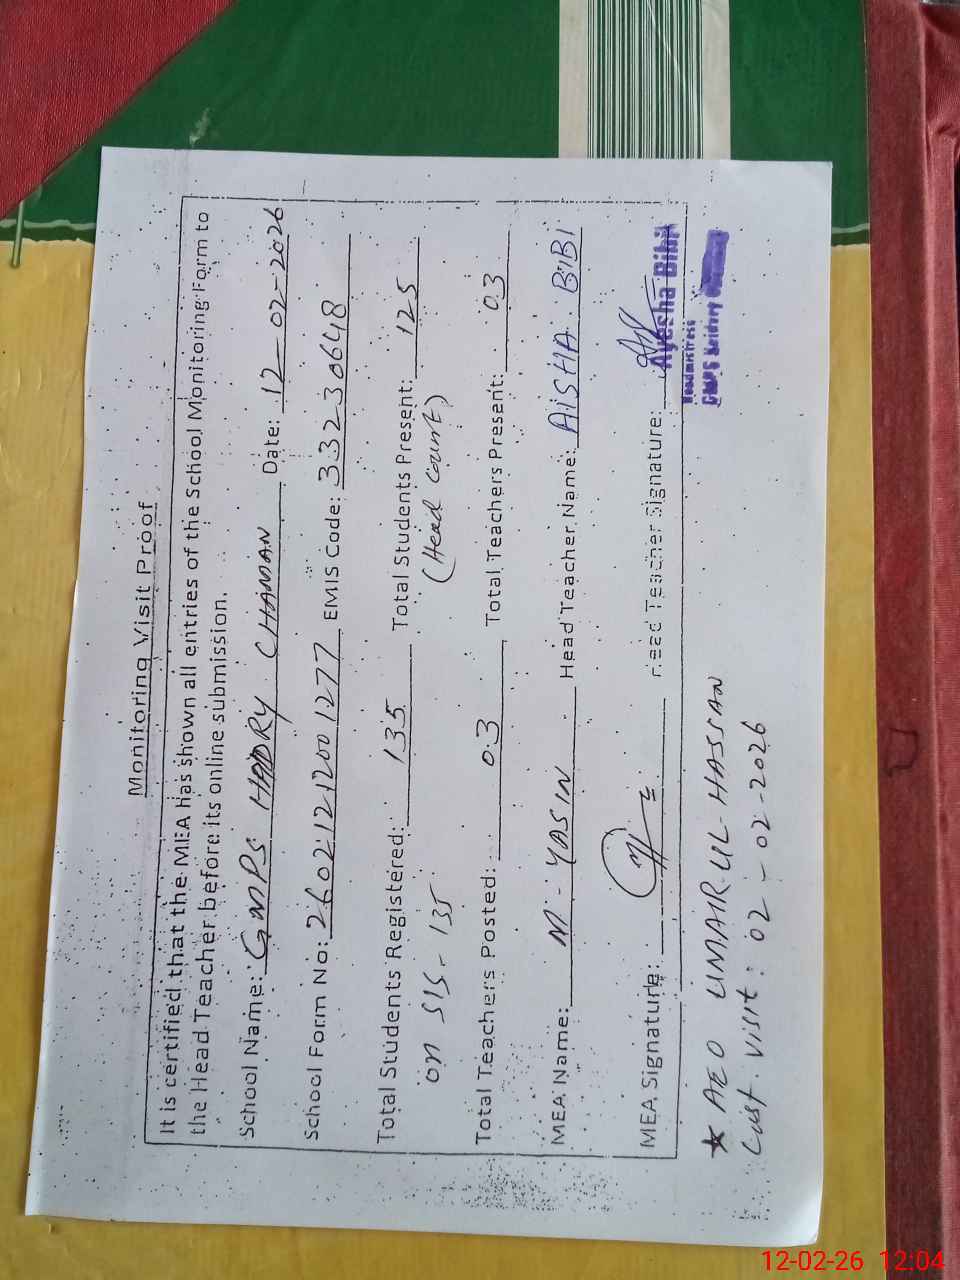 Monitoring Visit Proof
It is certified that the MEA has shown all entries of the School Monitoring Form to
the Head Teacher before its online submission.
School Name: GMPS HAIDRY CHAMAN Date: 12-02-2026
School Form No: 26021212001277 EMIS Code: 33230648
Total Students Registered: 135 Total Students Present: 125
on SIS - 135 (Head count)
Total Teachers Posted: 03 Total Teachers Present: 03
MEA Name: M. YASIN Head Teacher Name: AISHA BIBI
MEA Signature: Head Teacher Signature:
Ayesha Bibi
Headmistress
GMPS Haidry
★ AEO UMAIR-UL-HASSAN
Last visit: 02-02-2026
12-02-26 12:04